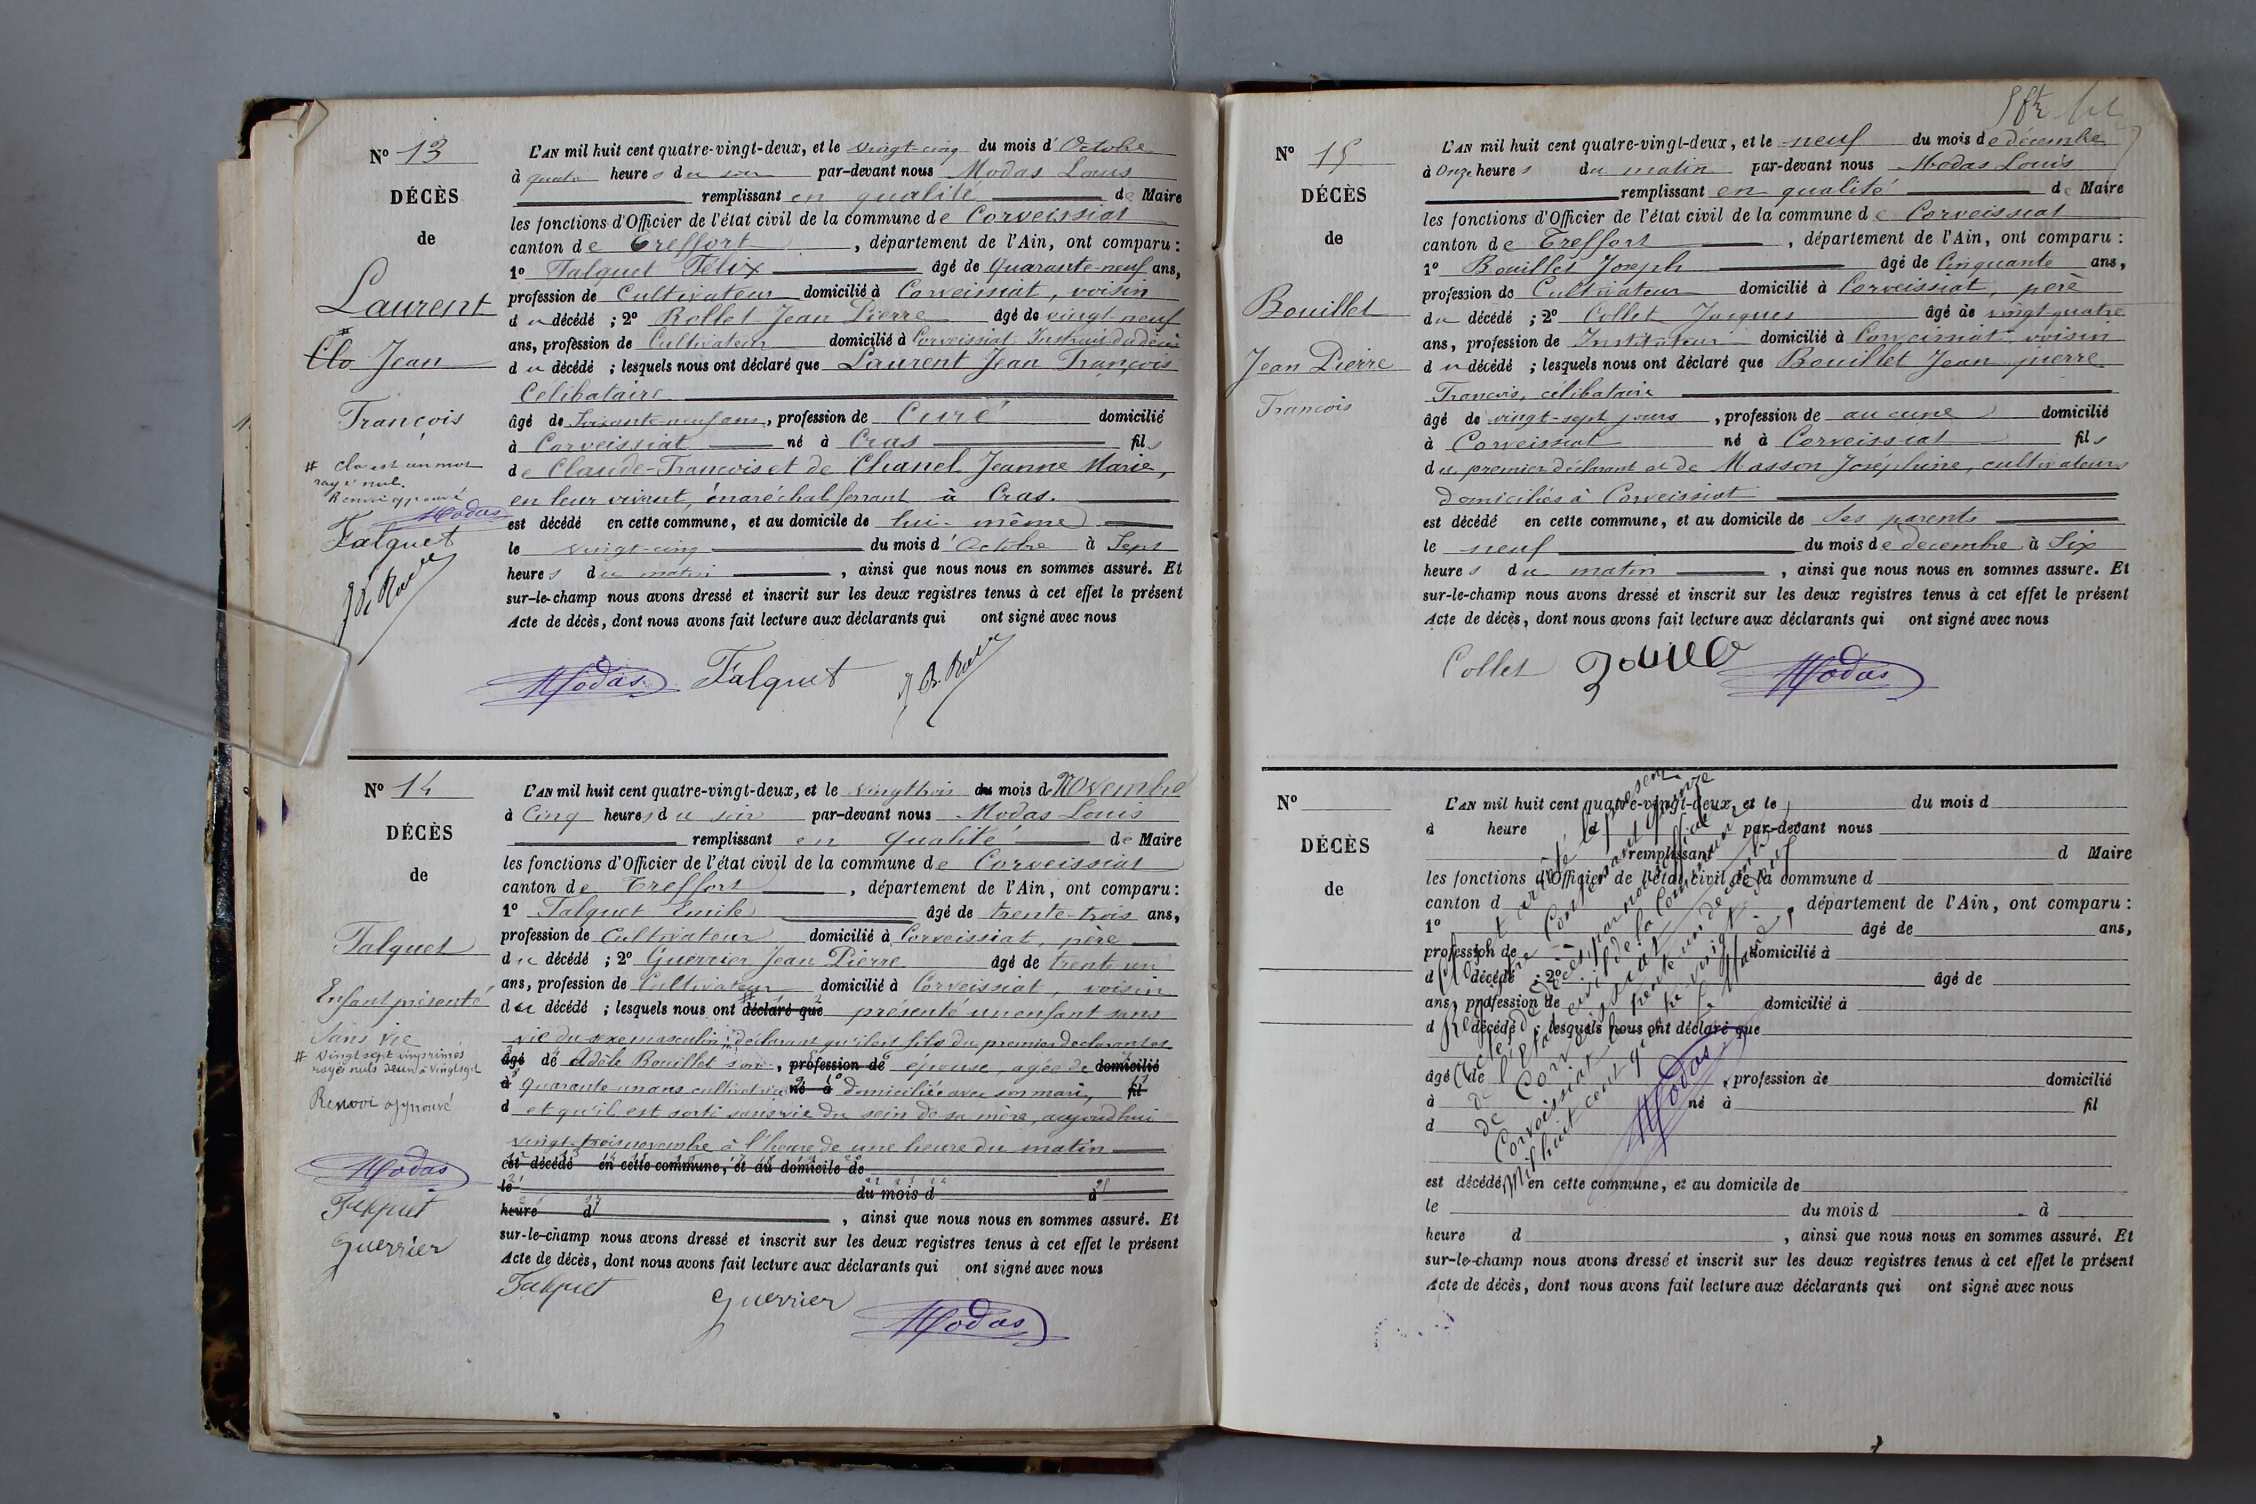 N° 13
DÉCÈS
de
Laurent
# Clo Jean
François
# clo est un mot
rayé nul.
Renvoi approuvé
Modas
Falquet
L'AN mil huit cent quatre-vingt-deux, et le vingt-cinq du mois d'Octobre
à quatre heures du soir par-devant nous Modas Louis
remplissant en qualité de Maire
les fonctions d'Officier de l'état civil de la commune de Corveissiat
canton de Treffort, département de l'Ain, ont comparu :
1° Falquet Félix âgé de Quarante-neuf ans,
profession de Cultivateur domicilié à Corveissiat, voisin
du décédé ; 2° Rollet Jean Pierre âgé de vingt neuf
ans, profession de Cultivateur domicilié à Corveissiat Instruis du décès
du décédé ; lesquels nous ont déclaré que Laurent Jean François
Célibataire
âgé de Soixante-neuf ans, profession de Curé domicilié
à Corveissiat né à Cras fils
de Claude-François et de Chanel Jeanne Marie,
en leur vivant, maréchal ferrant à Cras.
est décédé en cette commune, et au domicile de lui-même
le vingt-cinq du mois d'Octobre à Sept
heures du matin, ainsi que nous nous en sommes assuré. Et
sur-le-champ nous avons dressé et inscrit sur les deux registres tenus à cet effet le présent
Acte de décès, dont nous avons fait lecture aux déclarants qui ont signé avec nous
Modas Falquet
N° 14
DÉCÈS
de
Falquet
Enfant présenté
sans vie
# Vingt sept imprimés
rayés nuls de un à vingt sept
Renvoi approuvé
Modas
Falquet
Guerrier
L'AN mil huit cent quatre-vingt-deux, et le vingt trois du mois de Novembre
à Cinq heures du soir par-devant nous Modas Louis
remplissant en qualité de Maire
les fonctions d'Officier de l'état civil de la commune de Corveissiat
canton de Treffort, département de l'Ain, ont comparu :
1° Falquet Emile âgé de trente-trois ans,
profession de Cultivateur domicilié à Corveissiat, père
du décédé ; 2° Guerrier Jean Pierre âgé de trente un
ans, profession de Cultivateur domicilié à Corveissiat, voisin
du décédé ; lesquels nous ont déclaré que présenté un enfant sans
vie du sexe masculin déclarant qu'il est fils du premier déclarant et
âgé de Adèle Bouillet son, profession de épouse, agée de domicilié
à quarante un ans cultivatrice né à domiciliée avec son mari, fil
d et qu'il est sorti sans vie du sein de sa mère, aujourd'hui
vingt-trois novembre à l'heure de une heure du matin
est décédé en cette commune, et au domicile de
le du mois d à
heure d, ainsi que nous nous en sommes assuré. Et
sur-le-champ nous avons dressé et inscrit sur les deux registres tenus à cet effet le présent
Acte de décès, dont nous avons fait lecture aux déclarants qui ont signé avec nous
Falquet Guerrier Modas
N° 15
DÉCÈS
de
Bouillet
Jean Pierre
François
L'AN mil huit cent quatre-vingt-deux, et le neuf du mois de décembre
à Onze heures du matin par-devant nous Modas Louis
remplissant en qualité de Maire
les fonctions d'Officier de l'état civil de la commune de Corveissiat
canton de Treffort, département de l'Ain, ont comparu :
1° Bouillet Joseph âgé de Cinquante ans,
profession de Cultivateur domicilié à Corveissiat, père
du décédé ; 2° Collet Jacques âgé de vingt-quatre
ans, profession de Instituteur domicilié à Corveissiat voisin
du décédé ; lesquels nous ont déclaré que Bouillet Jean pierre
François, célibataire
âgé de vingt-sept jours, profession de aucune domicilié
à Corveissiat né à Corveissiat fils
du premier déclarant et de Masson Joséphine, cultivateurs
domiciliés à Corveissiat
est décédé en cette commune, et au domicile de ses parents
le neuf du mois de decembre à Six
heures du matin, ainsi que nous nous en sommes assuré. Et
sur-le-champ nous avons dressé et inscrit sur les deux registres tenus à cet effet le présent
Acte de décès, dont nous avons fait lecture aux déclarants qui ont signé avec nous
Collet Modas
N°
DÉCÈS
de
L'AN mil huit cent quatre-vingt-deux, et le du mois d
à heure d par-devant nous
remplissant d Maire
les fonctions d'Officier de l'état civil de la commune d
canton d, département de l'Ain, ont comparu :
1° âgé de ans,
profession de domicilié à
d décédé ; 2° âgé de
ans, profession de domicilié à
d décédé ; lesquels nous ont déclaré que
âgé de, profession de domicilié
à né à fil
d
est décédé en cette commune, et au domicile de
le du mois d à
heure d, ainsi que nous nous en sommes assuré. Et
sur-le-champ nous avons dressé et inscrit sur les deux registres tenus à cet effet le présent
Acte de décès, dont nous avons fait lecture aux déclarants qui ont signé avec nous
Clos et arrêté le présent
Registre Comprenant quinze
actes de décès, par nous officier
de l'état civil de la Commune
de Corveissiat
Corveissiat le trente un décembre
Mil huit cent quatre-vingt deux
Le Maire,
Modas